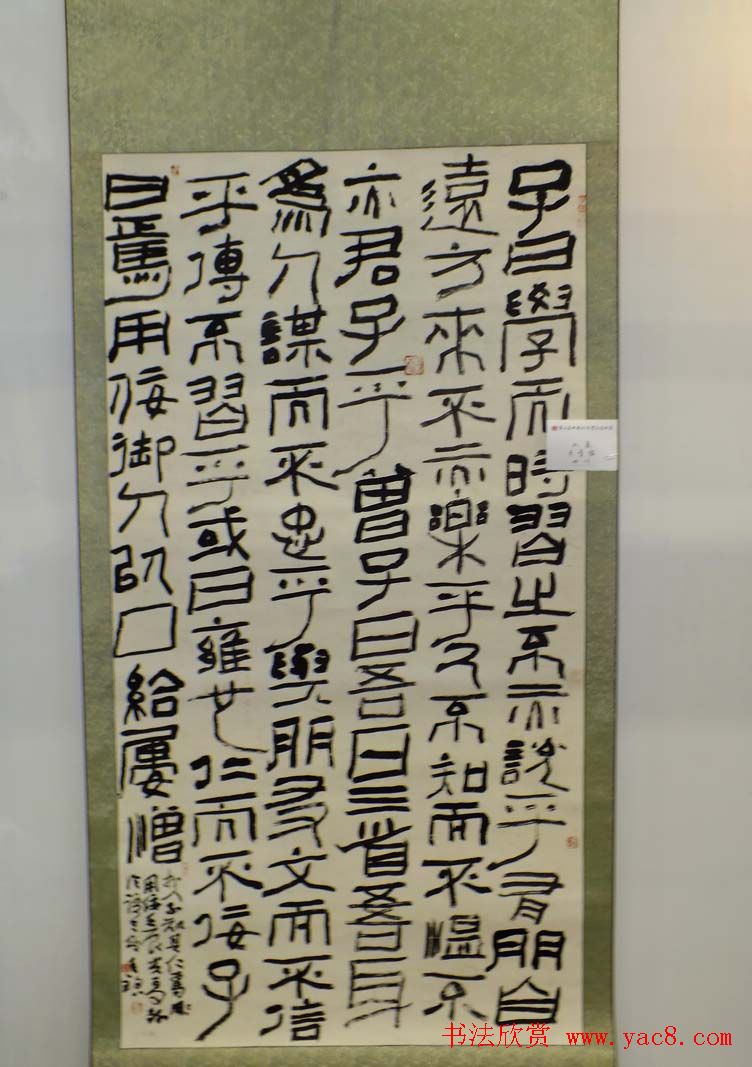 子曰學而時習之不亦說乎有朋自
遠方來不亦樂乎人不知而不慍不
亦君子乎曾子曰吾日三省吾身
爲人謀而不忠乎與朋友交而不信
乎傳不習乎或曰雍也仁而不佞子
曰焉用佞御人以口給屢憎
於人不知其仁焉
用佞
书法欣赏 www.yac8.com